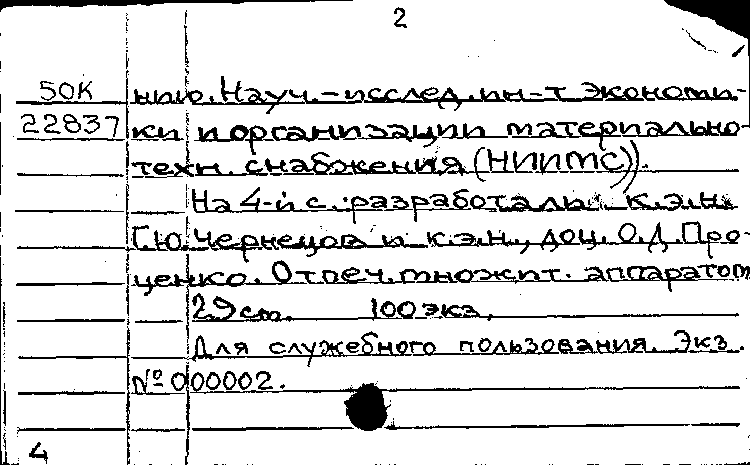 2
50К нию. Науч.-исслед. ин-т экономи-
22837 ки и организации материально-
техн. снабжения (НИИМС)).
На 4-й с.: разработали к.э.н.
Г.Ю. Чернецов и к.э.н., доц. О.Д. Про-
ценко. Отпеч. множит. аппаратом
29 см. 100 экз.
Для служебного пользования. Экз.
№ 000002.
4